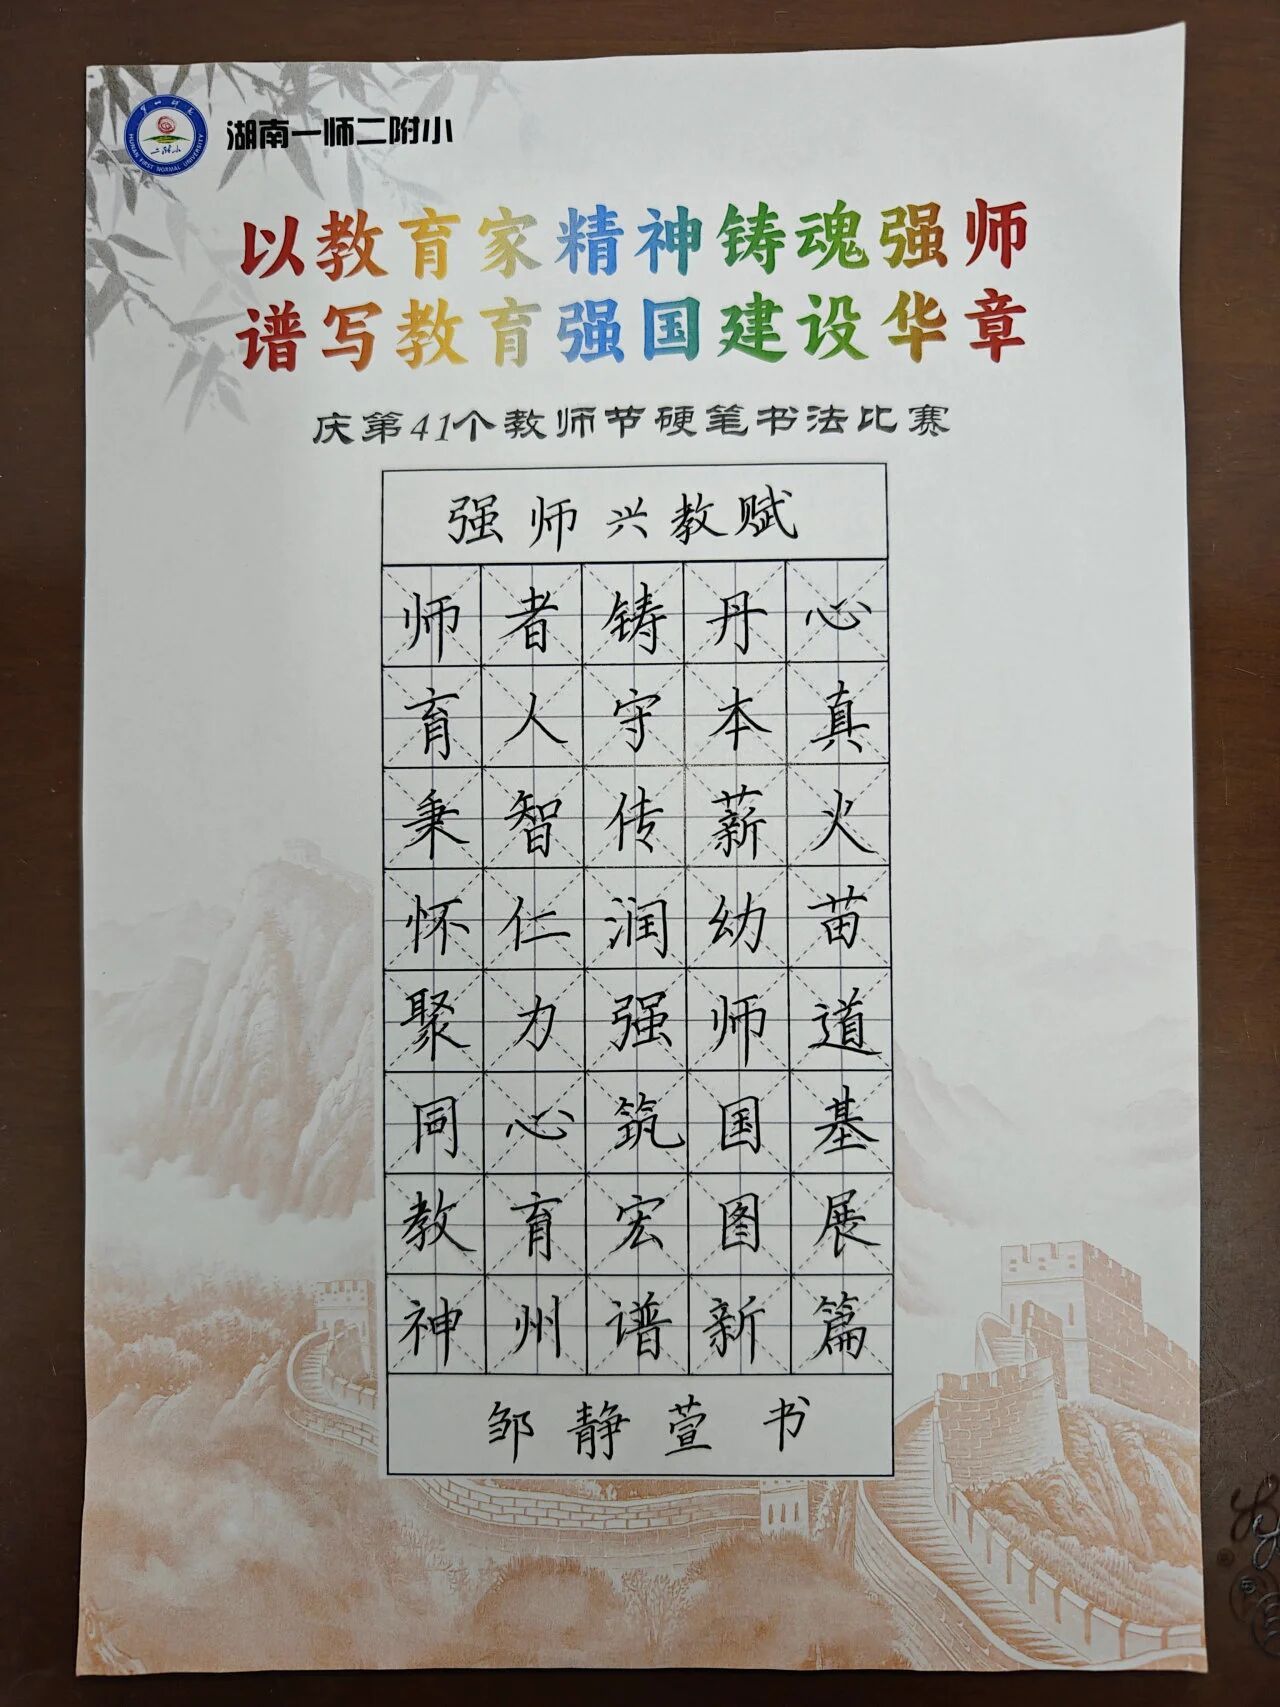 湖南一师二附小
第一师范
二附小
HUNAN FIRST NORMAL UNIVERSITY
以教育家精神铸魂强师
谱写教育强国建设华章
庆第41个教师节硬笔书法比赛
强师兴教赋
师者铸丹心
育人守本真
秉智传薪火
怀仁润幼苗
聚力强师道
同心筑国基
教育宏图展
神州谱新篇
邹静萱书